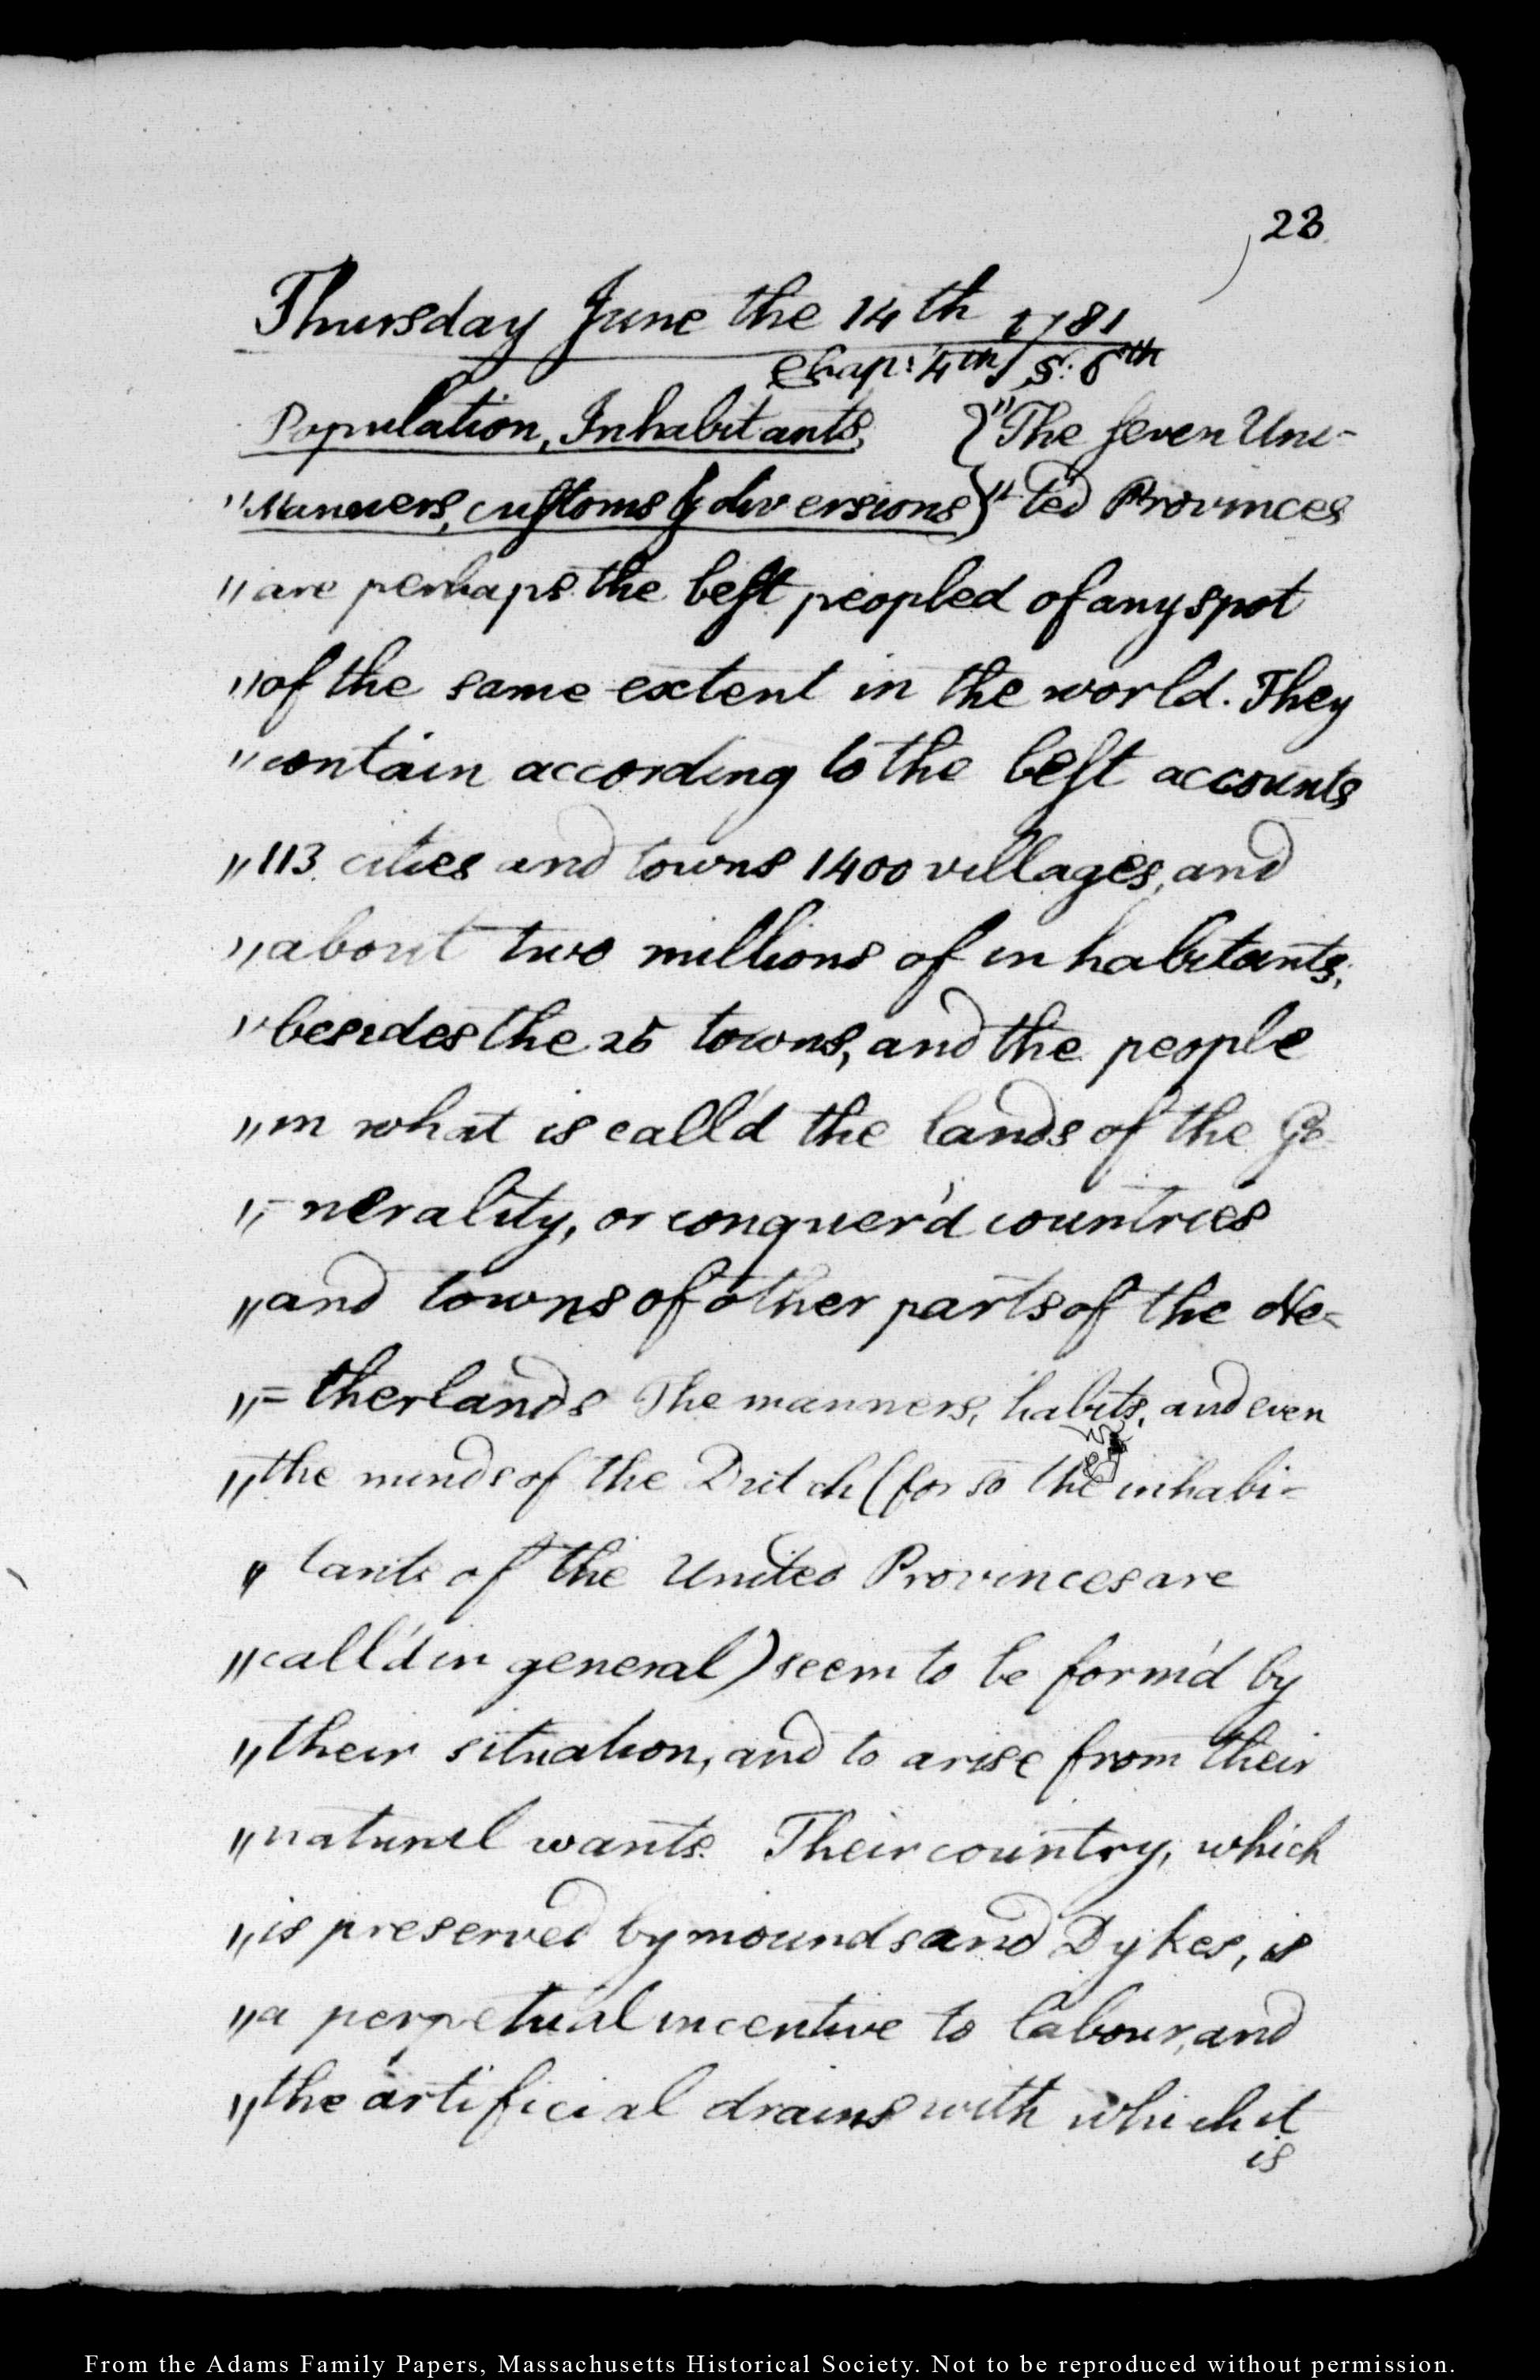 23
Thursday June the 14th 1781
Chap: 4th S: 6th
Population, Inhabitants, } "The seven Uni-
"Manners, customs & diversions } "ted Provinces
"are perhaps the best peopled of any spot
"of the same extent in the world. They
"contain according to the best accounts
"113 cities and towns 1400 villages, and
"about two millions of inhabitants,
"besides the 25 towns, and the people
"in what is call'd the lands of the Ge
"-nerality, or conquer'd countries
"and towns of other parts of the Ne=
"=therlands The manners, habits, and even
"the minds of the Dutch (for so the inhabi=
"tants of the United Provinces are
"call'd in general) seem to be form'd by
"their situation, and to arise from their
"natural wants. Their country, which
"is preserved by mounds and Dykes, is
"a perpetual incentive to labour, and
"the artificial drains with which it
is
From the Adams Family Papers, Massachusetts Historical Society. Not to be reproduced without permission.